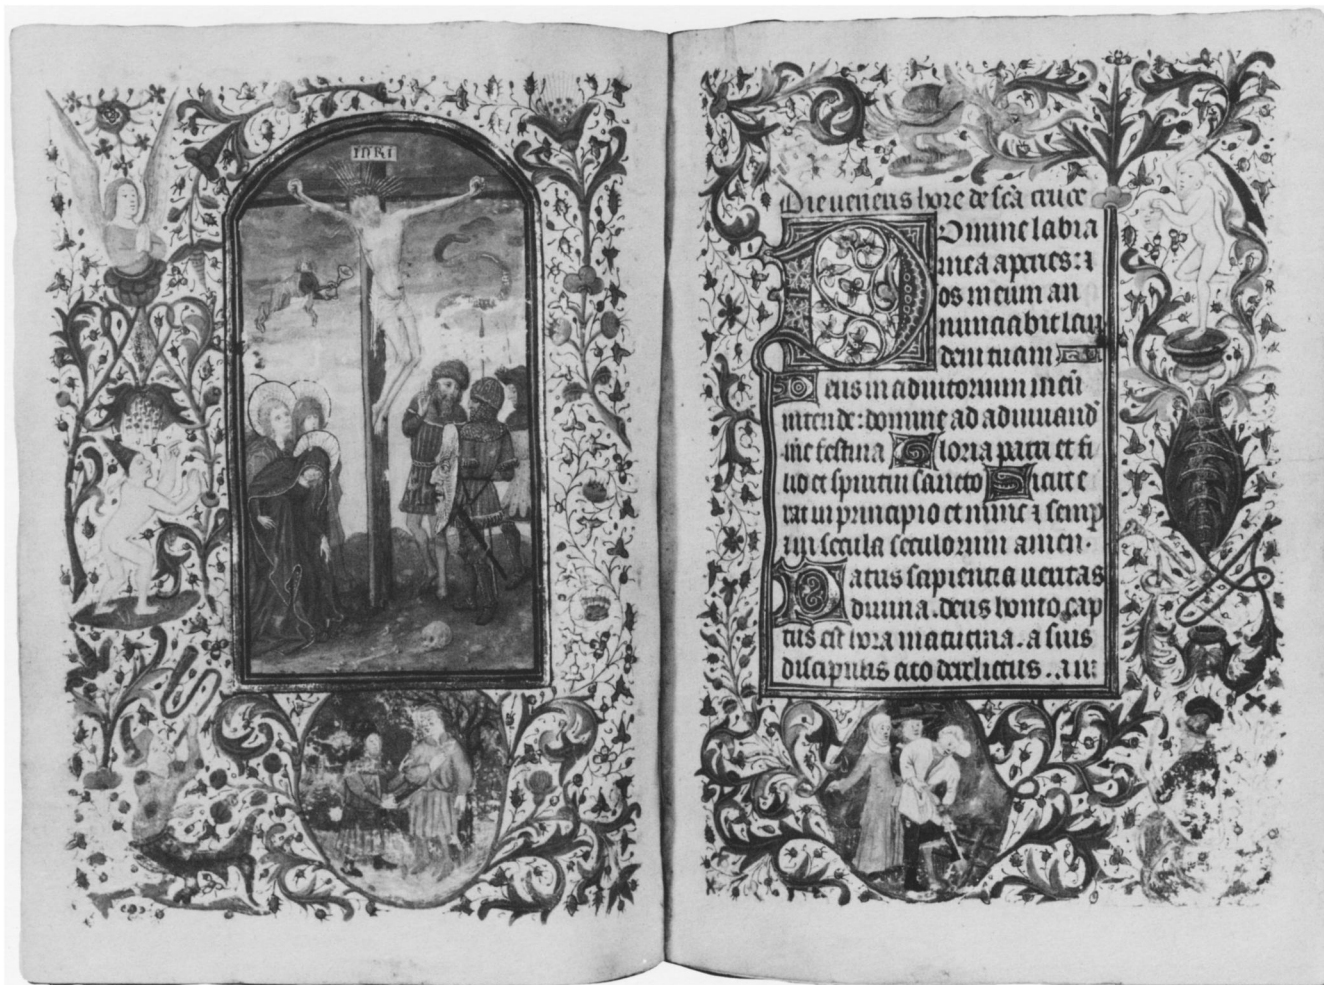 INRI
Die veneris hore de scã cruce
Domine labia
mea aperies: ⁊
os meum an
nunciabit lau
dem tuam
Deus in adiutorium meũ
intende: domine ad adiuuand'
me festina Gloria patri et fi
lio et spiritui sancto Sicut e
rat in principio et nunc ⁊ semp
in secula seculorum amen.
Patris sapientia ueritas
diuina. deus homo cap
tus est hora matutina. a suis
discipulis cito derelictus..a iu